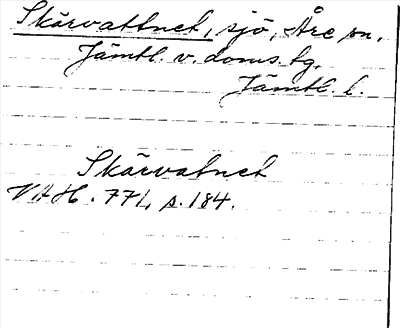 Skärvattnet, sjö, Åre sn.
Jämtl. v. doms. tg.
Jämtl. l.
Skärvatnet
VAH. 771, s. 184.